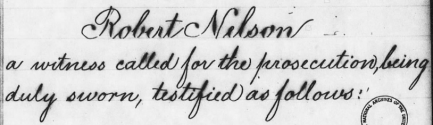 Robert Nelson
a witness called for the prosecution, being
duly sworn, testified as follows:
NATIONAL ARCHIVES OF THE UNI